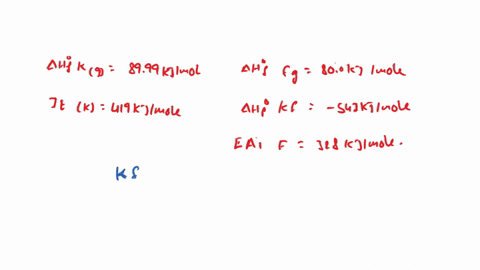 ΔHf° K(g) = 89.99 KJ/mol
ΔHf° Fg = 80.0 KJ/mole
It (K) = 419 KJ/mole
ΔHf° Kf = -543 KJ/mole
EA1 F = 328 KJ/mole.
Kf